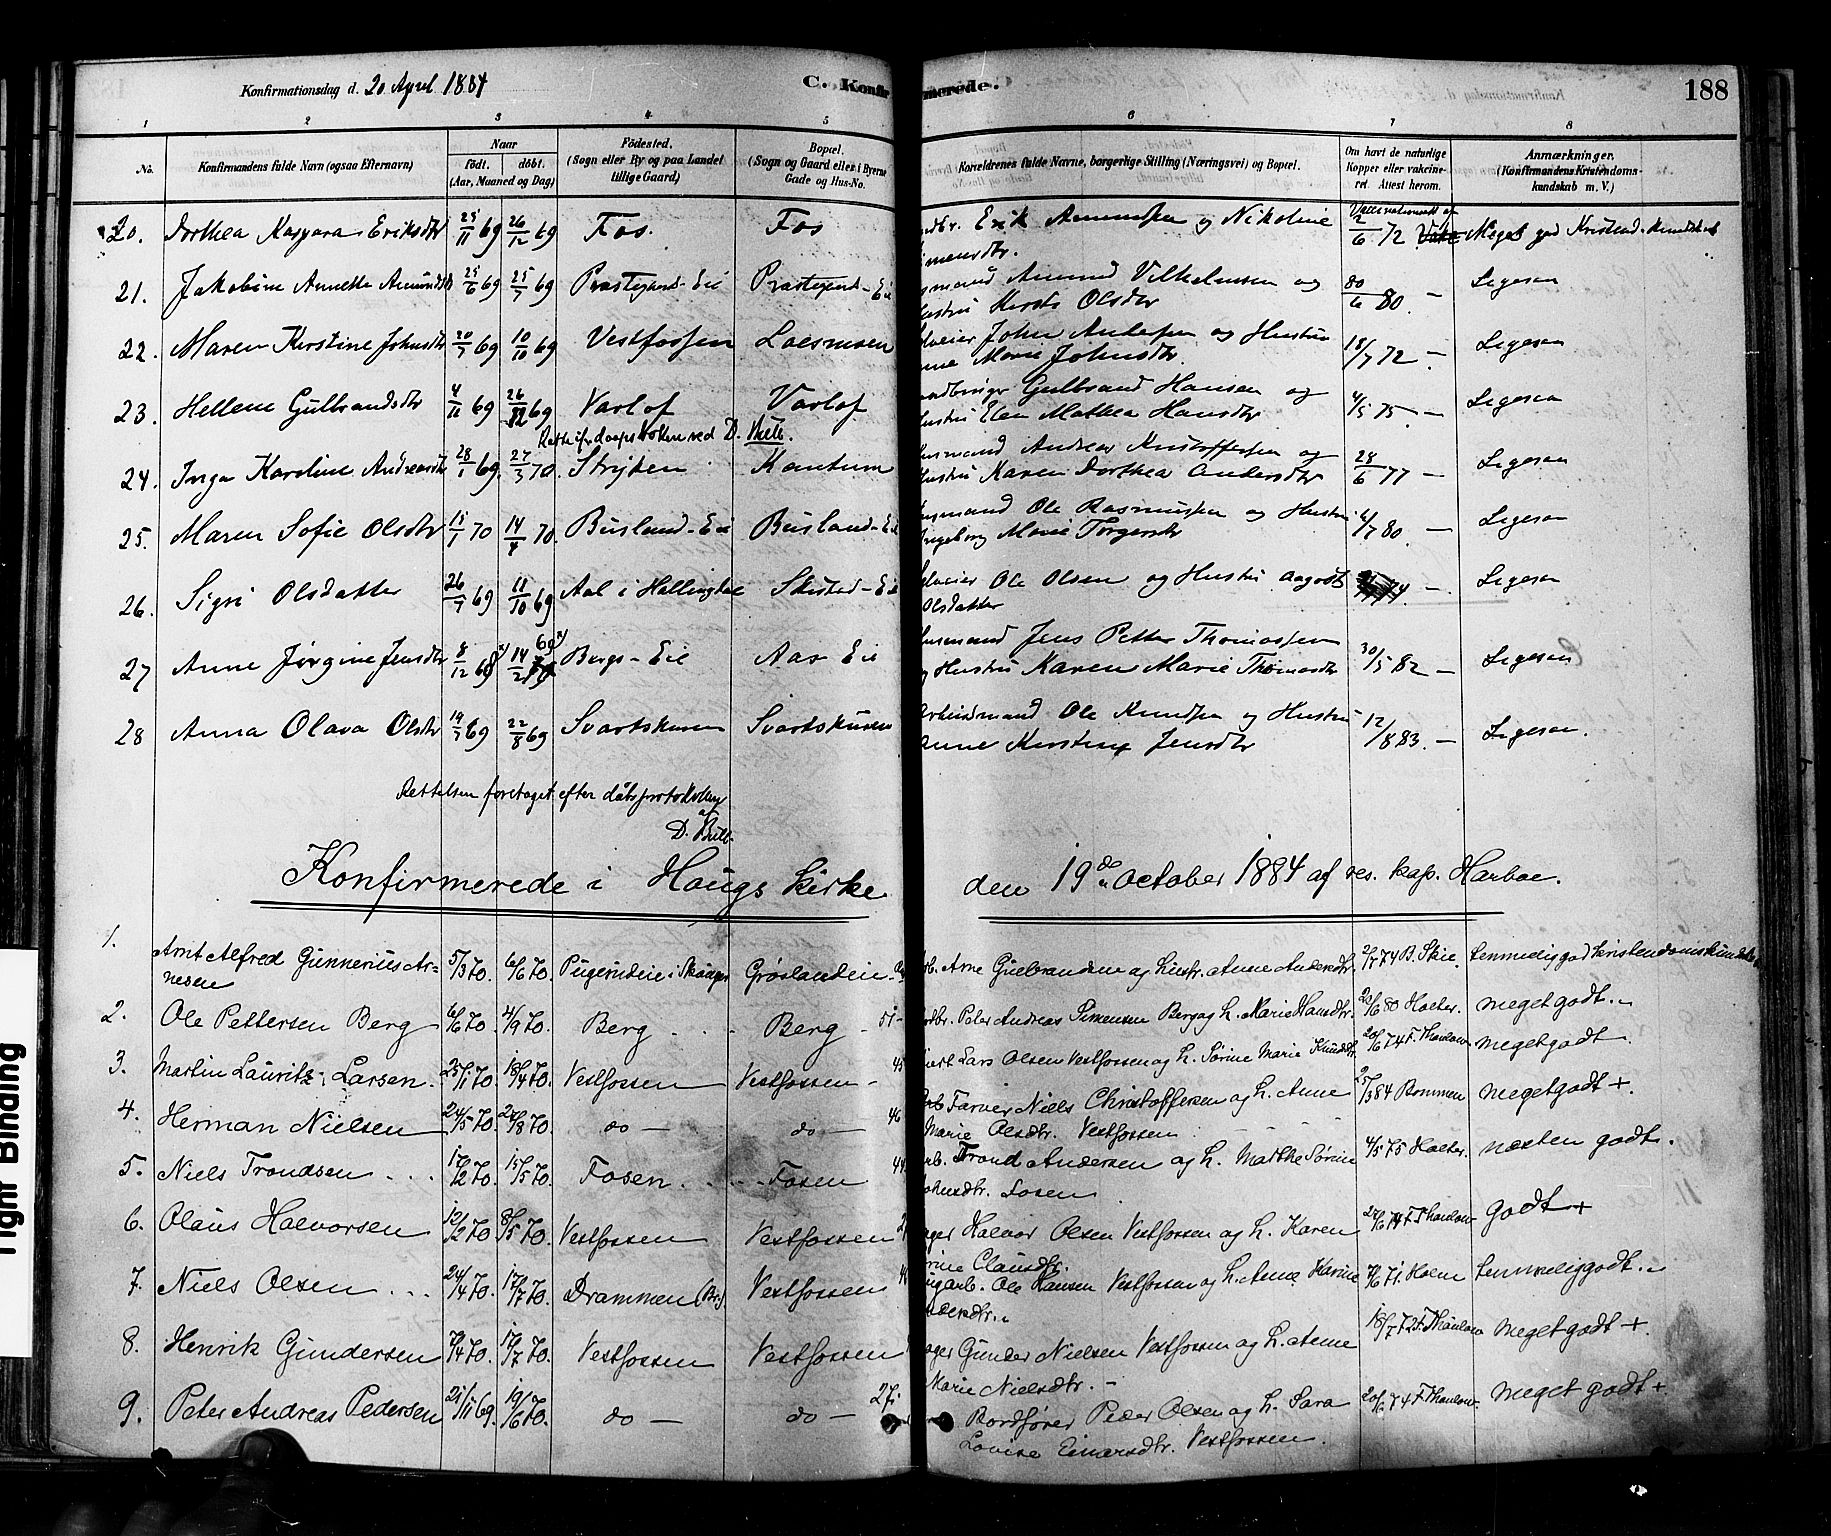 Konfirmationsdag d. 20 April 1884
C. Konfirmerede.
188
1 2 3 4 5 6 7 8
No.
Konfirmandens fulde Navn (ogsaa Efternavn)
Naar
født. døbt.
(Aar, Maaned og Dag)
Fødested.
(Sogn eller By og paa Landet tillige Gaard)
Bopæl.
(Sogn og Gaard eller i Byerne Gade og Hus-No.
Forældrenes fulde Navne, borgerlige Stilling (Næringsvei) og Bopæl.
Om havt de naturlige Kopper eller vakcineret. Attest herom.
Anmærkninger.
(Konfirmandens Kristendomskundskab m. V.)
20. Dorthea Kaspara Eriksdtr 25/11 69 26/12 69 Fos. Fos Erik Amundsen og Nikoline 2/6 72 Meget god Kristend. kundskab
21. Jakobine Annette Amundsdtr 25/6 69 25/7 69 Præstegaard-Eie Præstegaard-Eie Amund Vilhelmsen og Kirsti Olsdtr 80/6 80 — Ligesaa
22. Maren Kirstine Johnsdtr 20/7 69 10/10 69 Vestfossen Loesmoen John Andersen og Hustru Marie Johnsdtr. 18/7 72 — Ligesaa
23. Hellene Gulbrandsdtr 4/11 69 26/12 69 Varlof Varlof Gulbrand Hansen og Elen Mathea Hansdtr 4/5 75 — Ligesaa
Rettet efter daapsboken ved D. Bull.
24. Inga Karoline Andreasdtr 28/1 69. 27/3 70. Stryken Kantum Andreas Kristoffersen og Karen Dorthea Andersdtr 28/6 77 — Ligesaa
25. Maren Sofie Olsdtr 11/1 70 14/4 70. Busland-Eie Busland-Eie Ole Rasmussen og Hustru Ingeborg Marie Torgersdtr 6/7 80. — Ligesaa
26. Sigri Olsdatter 26/7 69 11/10 69 Aal i Hallingdal Skistad-Eie Ole Olsen og Hustru Aagodt Olsdatter 74. — Ligesaa
27 Anne Jørgine Jensdtr 8/12 68 14/2 69 Bergs-Eie Aas Eie Jens Petter Thomassen og Hustru Karen Marie Thomasdtr 30/5 82 — Ligesaa
28 Anna Olava Olsdtr 19/7 69 22/8 69 Svartskuren Svartskuren Arbeidsmand Ole Knudsen og Hustru Anne Kirstine Jensdtr 12/8 83. — Ligesaa.
Rettelsen foretaget efter dåbsprotokollen
af
D. Bull.
Konfirmerede i Haugs Kirke den 19de October 1884 af res. kap. Harboe.
1. Arnt Alfred Gunnerius Arnesen 5/3 70. 6/6 70. Pugerudeie i Skouger Grøslandeie Arne Gulbrandsen og Hustr. Anne Andersdtr. 2/7 74 B. Skie. temmelig god kristendomskundskab
2. Ole Pettersen Berg 6/6 70. 4/9 70. Berg Berg Peter Andreas Simensen Berg og H. Marie Hansdtr. 20/6 80 Holter. meget godt.
3. Martin Lauritz Larsen. 25/1 70. 18/4 70. Vestfossen Vestfossen Lars Olsen Vestfossen og H. Sørine Marie Knudsdtr. 20/6 74 F. Thaulow meget godt.
4. Herman Nielsen 24/5 70. 28/8 70. do — do — Farver Niels Christoffersen og H. Anne Marie Olsdtr. Vestfossen 25/3 84 Bommen meget godt +
5. Niels Trondsen 17/2 70. 15/5 70. Fosen Fosen Trond Andersen og H. Marthe Sørine Johnsdtr. Fosen 4/5 75 Holter. næsten godt.
6. Olaus Halvorsen 12/2 70. 8/5 70. Vestfossen Vestfossen Halvor Olsen Vestfossen og H. Karen Clausdtr. 24/6 74 F. Thaulow godt +
7. Niels Olsen 24/4 70. 17/7 70. Drammen (Br.) Vestfossen Ole Hansen Vestfossen og H. Anne Karine Andersdtr. 71. Holm temmelig godt.
8. Henrik Gundersen 14/4 70. 17/7 70. Vestfossen Vestfossen Gunder Nielsen Vestfossen og H. Anne Marie Nielsdtr. - 18/7 72 F. Thaulow meget godt +.
9. Peter Andreas Pedersen 21/11 69. 19/6 70. do — do — 27. Bordfører Peder Olsen og H. Sara Lovise Einarsdtr. Vestfossen. 20/6 74 F. Thaulow. meget godt +
Tight Binding